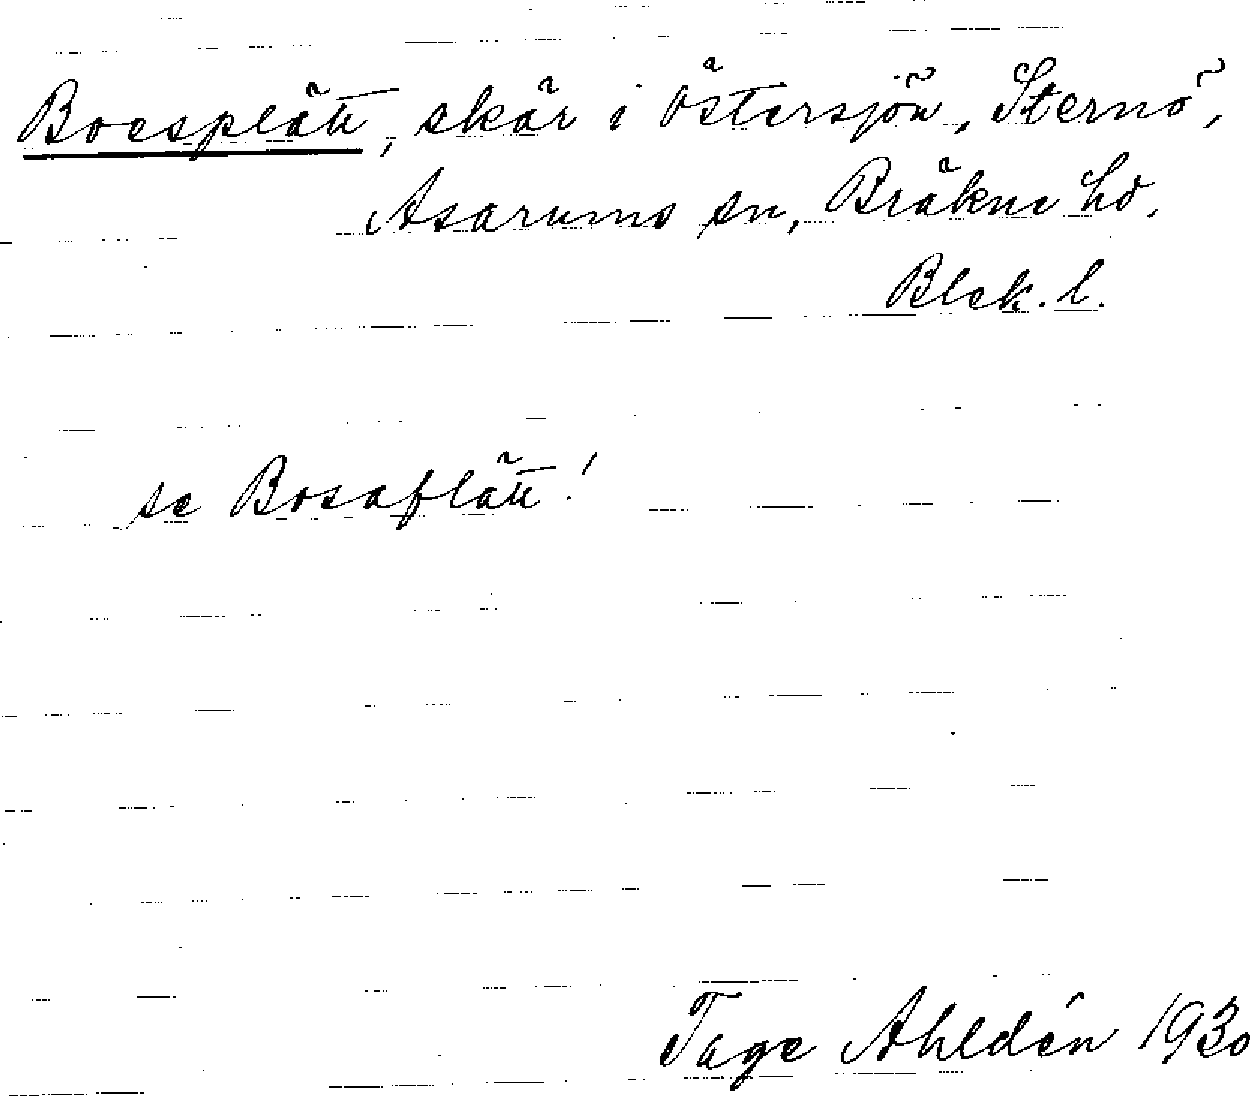 Boesplätt, skär i Östersjön, Sternö,
Asarums sn, Bräkne hd,
Blek. l.
se Bosaflätt!
Tage Ahldén 1930